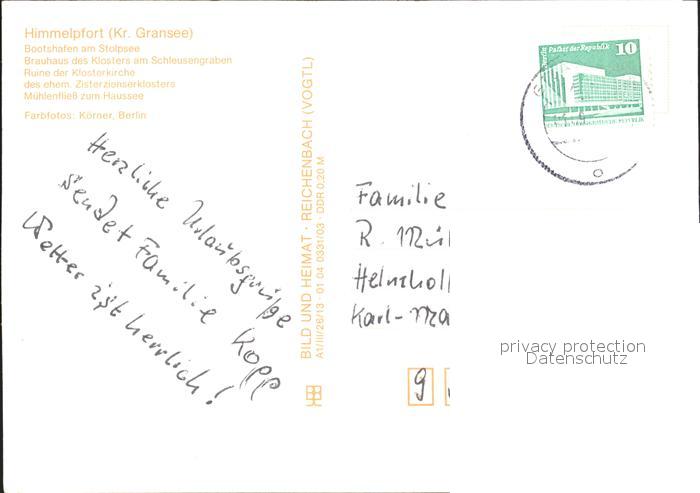 Himmelpfort (Kr. Gransee)
Bootshafen am Stolpsee
Brauhaus des Klosters am Schleusengraben
Ruine der Klosterkirche
des ehem. Zisterzienserklosters
Mühlenfließ zum Haussee
Farbfotos: Körner, Berlin
Herzliche Urlaubsgrüße
sendet Familie Kopp
Wetter ist herrlich!
BILD UND HEIMAT · REICHENBACH (VOGTL)
A1/III/26/13 · 01 04 0331/03 · DDR 0,20 M
Berlin Palast der Republik 10
Familie
R. Mül
Helmholl
Karl-Ma
9
privacy protection
Datenschutz